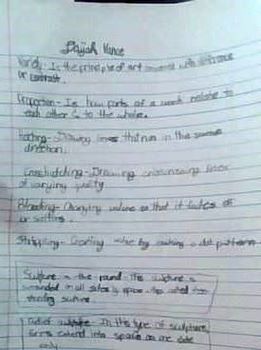 Vance
Variety- Is the principle of art concerned with difference
or contrast.
Proportion- Is how parts of a work relate to
each other & to the whole.
Hatching- Drawing lines that run in the same
direction.
Crosshatching- Drawing crisscrossing lines
of varying quality
Blending- Changing value so that it fades
or softens.
Stippling- Creating value by making a dot pattern
in the round- this sculpture is
surrounded on all sides by space- this called free
standing
relief sculpture- In this type of sculpture,
forms extend into space on one side
only